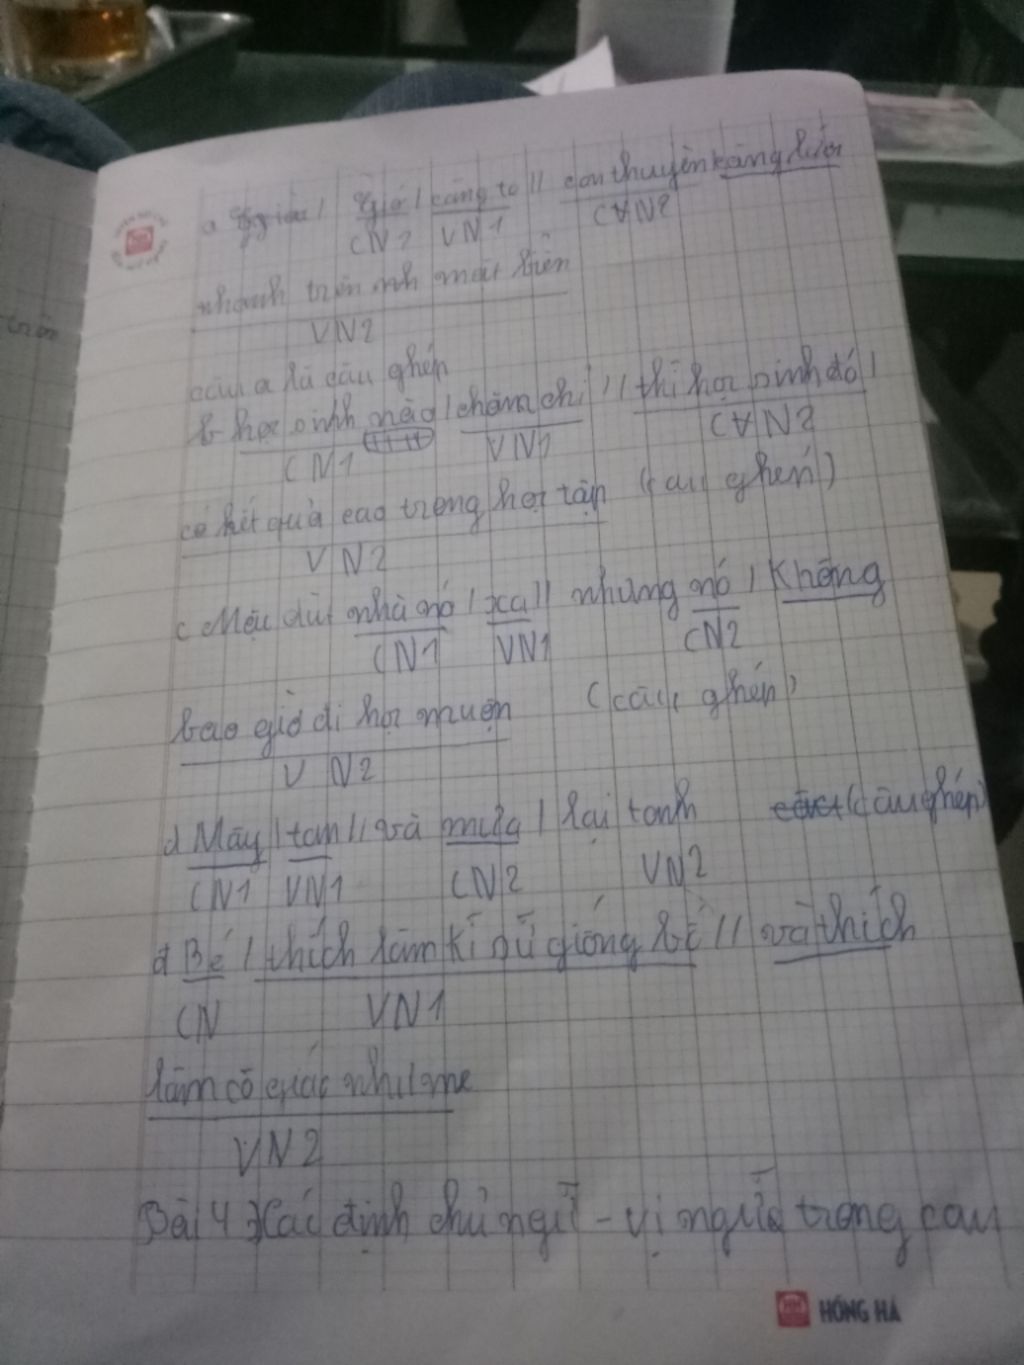 a Gió / càng to // con thuyền càng lướt
CN2 VN1 CVN2
nhanh trên mặt biển
VN2
câu a là câu ghép
b học sinh nào / chăm chỉ // thì học sinh đó /
CN1 VN1 CVN2
có kết quả cao trong học tập (câu ghép)
VN2
c Mặc dù nhà nó / xa // nhưng nó / không
CN1 VN1 CN2
bao giờ đi học muộn (câu ghép)
VN2
d Mây / tan // và mưa / lại tạnh (câu ghép)
CN1 VN1 CN2 VN2
đ Bé / thích làm kĩ sư giống bố // và thích
CN VN1
làm cô giáo như mẹ
VN2
Bài 4 Xác định chủ ngữ - vị ngữ trong câu
HỒNG HÀ